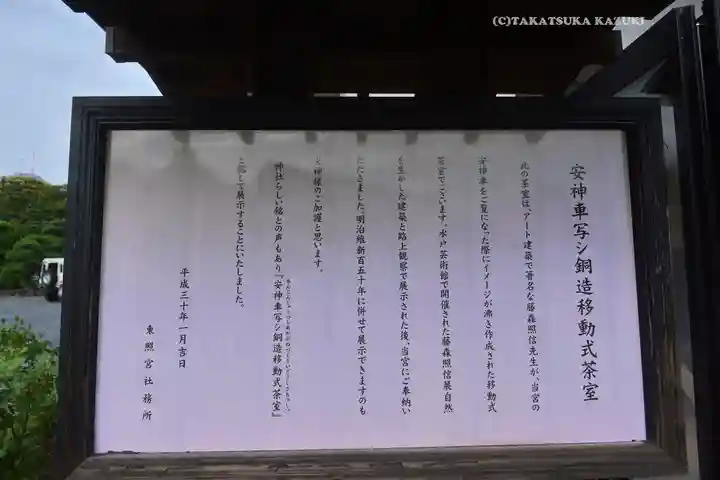 (C)TAKATSUKA KAZUKI
安神車写シ銅造移動式茶室
此の茶室は、アート建築で著名な藤森照信先生が、当宮の
安神車をご覧になった際にイメージが沸き作成された移動式
茶室でございます。水戸芸術館で開催された藤森照信展自然
を生かした建築と路上観察で展示された後、当宮にご奉納い
ただきました。明治維新百五十年に併せて展示できますのも
大神様のご加護と思います。
神社らしい銘との声もあり『安神車写シ銅造移動式茶室』
と銘して展示することにいたしました。
平成三十年一月吉日
東照宮社務所